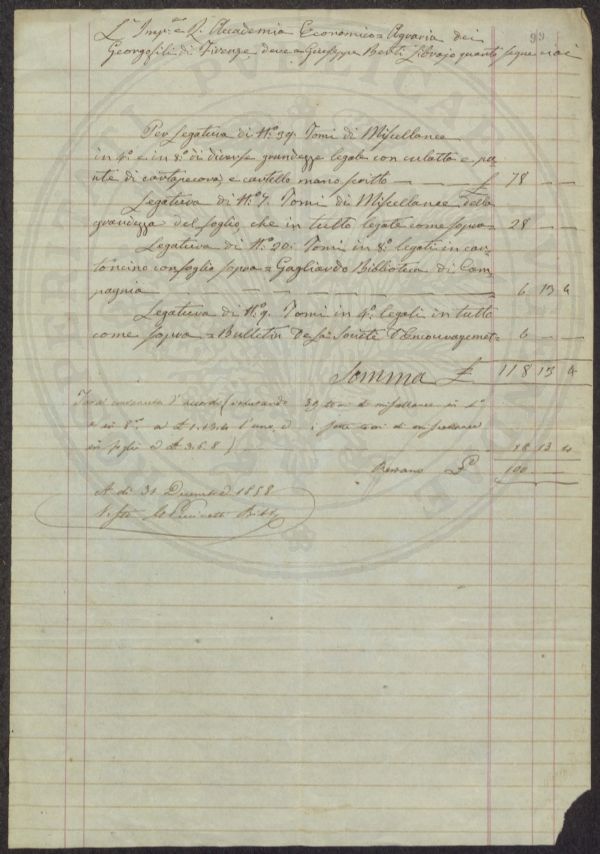 L'Imp.e e R. Accademia Economico=Agraria dei 99
Georgofili di Firenze deve a Giuseppe Berti Librajo quanto segue cioè
Per Legatura di N.o 39. Tomi di Miscellanee
in 4.o e in 8.o di diverse grandezze legate con culatta e pu
nte di cartapecora, e cartello mano scritto — £ 78 — —
Legatura di N.o 7. Tomi di Miscellanee della
grandezza del foglio che in tutto legate come sopra = 28 — —
Legatura di N.o 20. Tomi in 8.o legati in car=
toncino con foglio sopra = Gagliardo Biblioteca di Cam=
pagnia — — — — 6 13 4
Legatura di N.o 9. Tomi in 4.o legati in tutto
come sopra = Bulletin De la Societe d'Encouragemet = 6 — —
Somma £ 118 13 4
39 tomi di miscellanee in 4.o
e in 8.o a £ 1.13.4 l'uno, e i tomi di miscellanee
in foglio a £ 3.6.8) 18 13 4
Restano £ 100 — —
A dì 31 Decembre 1858